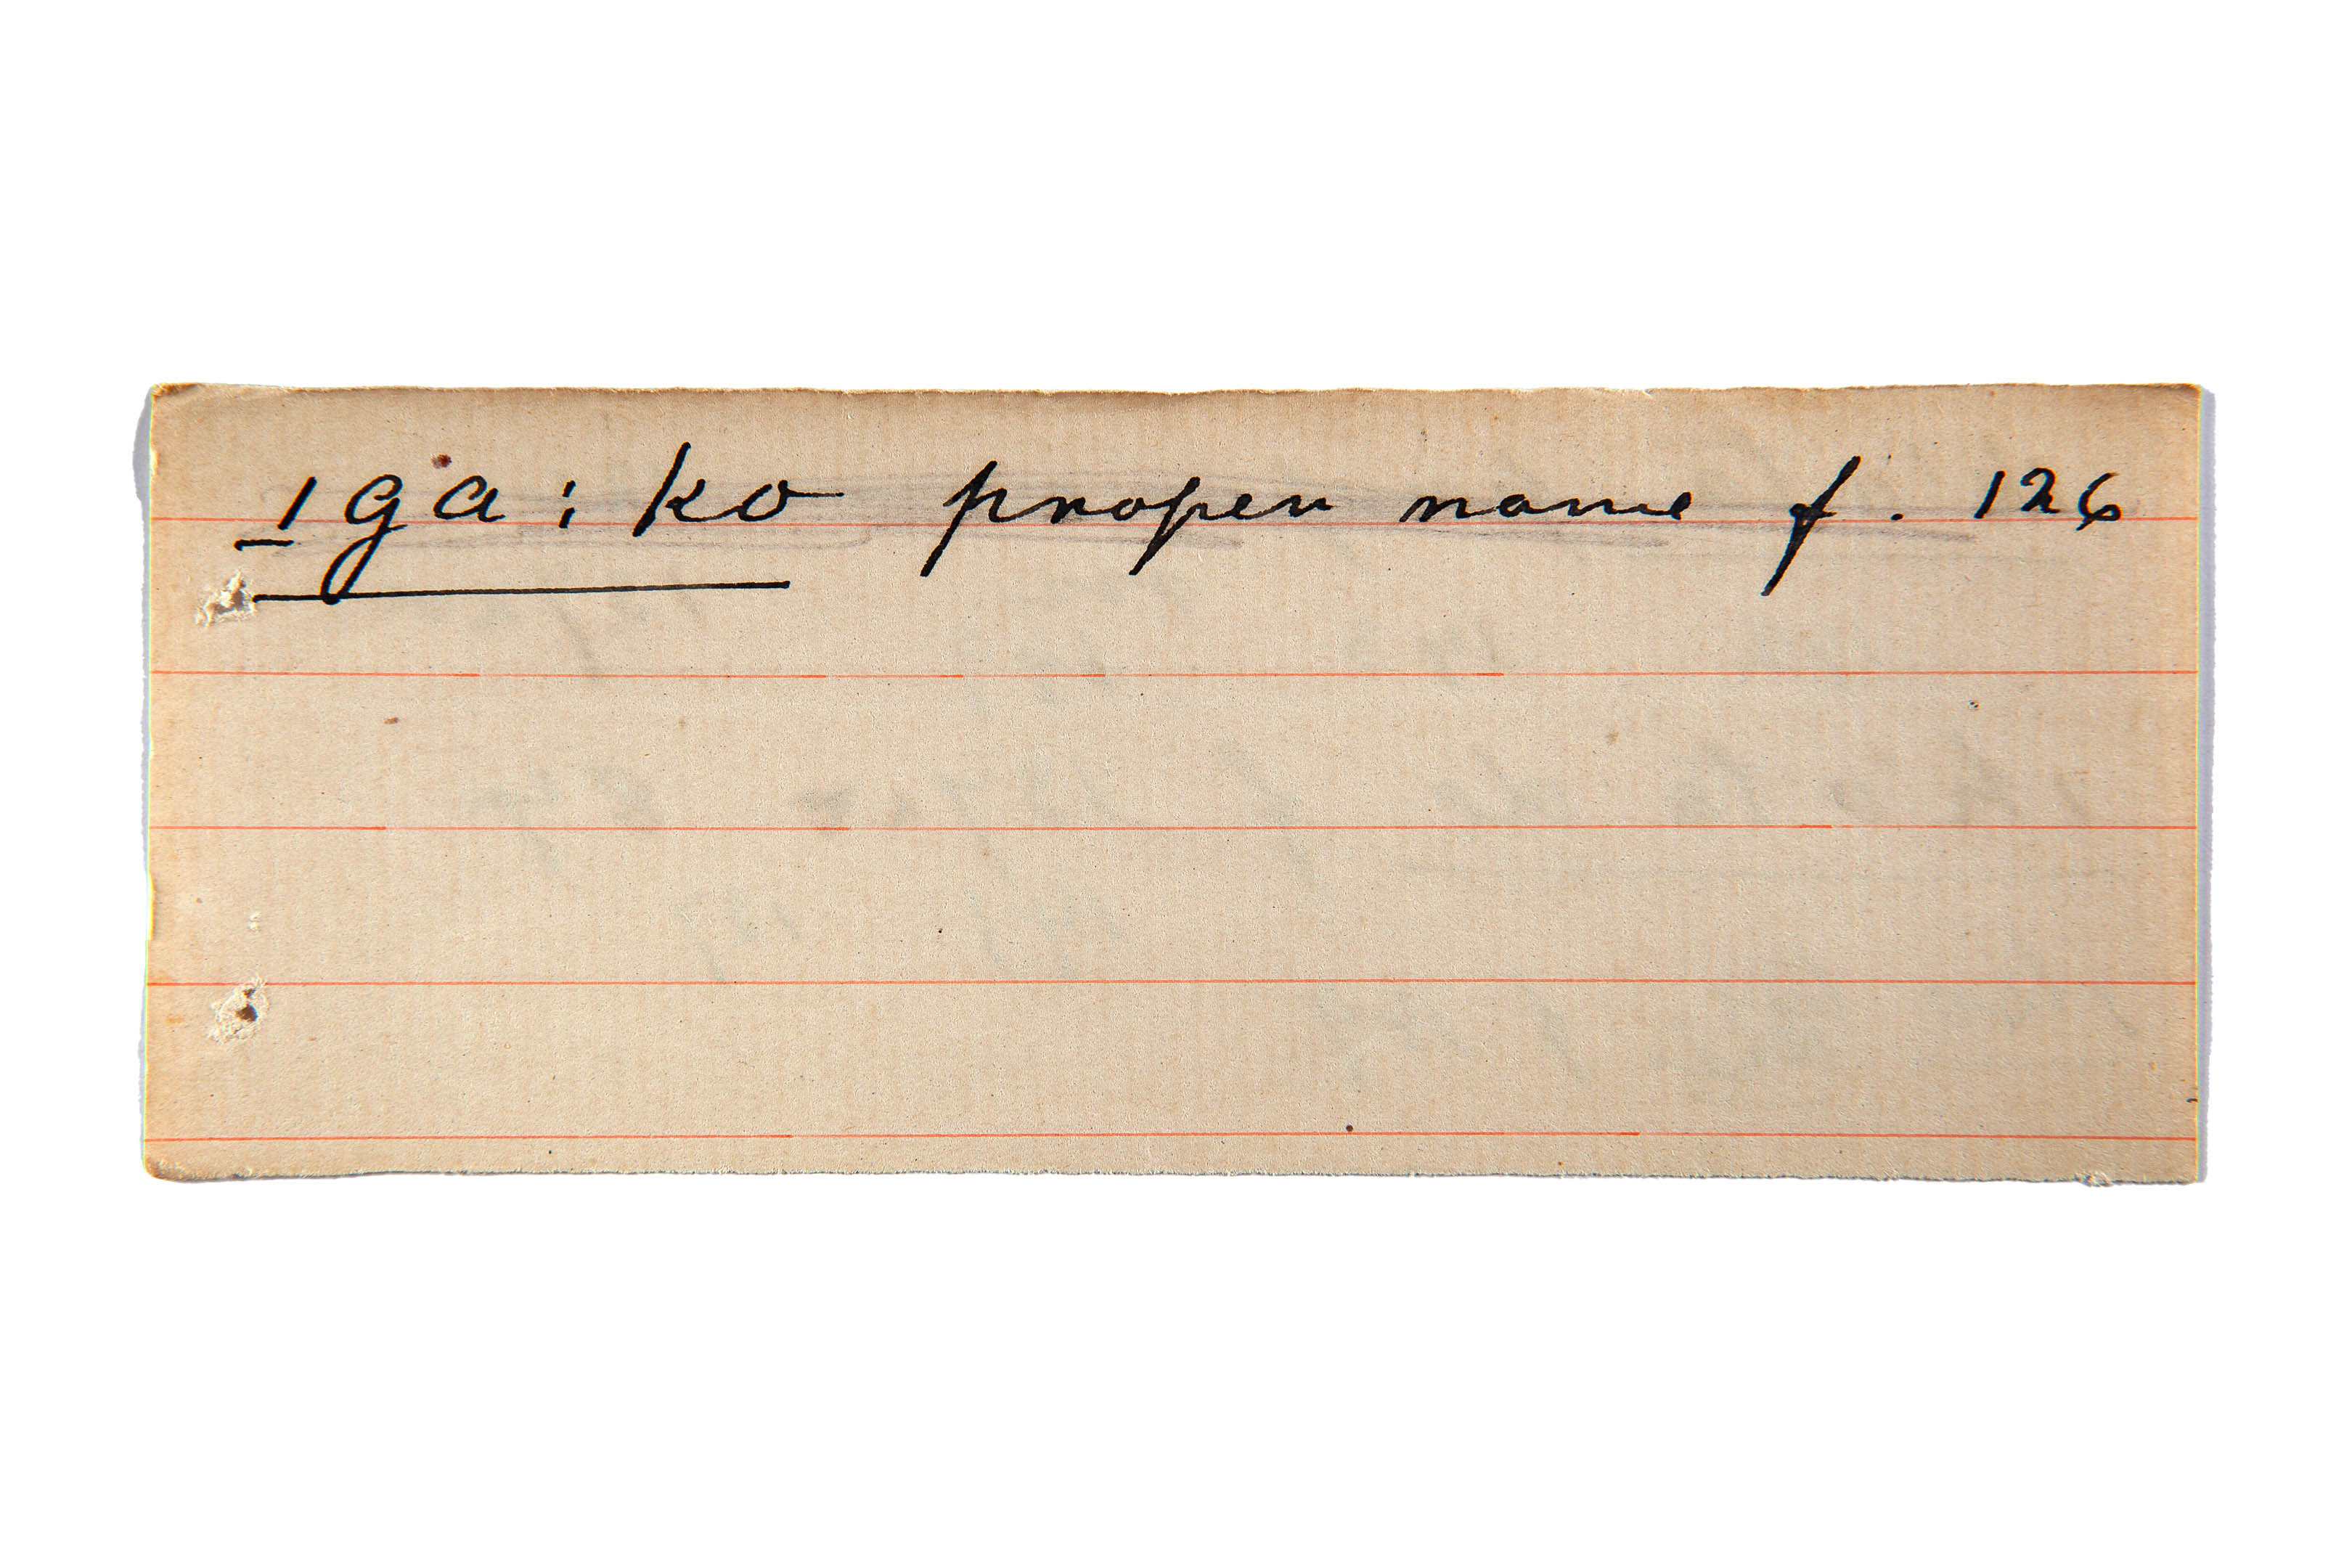 ıga: ko proper name f. 126